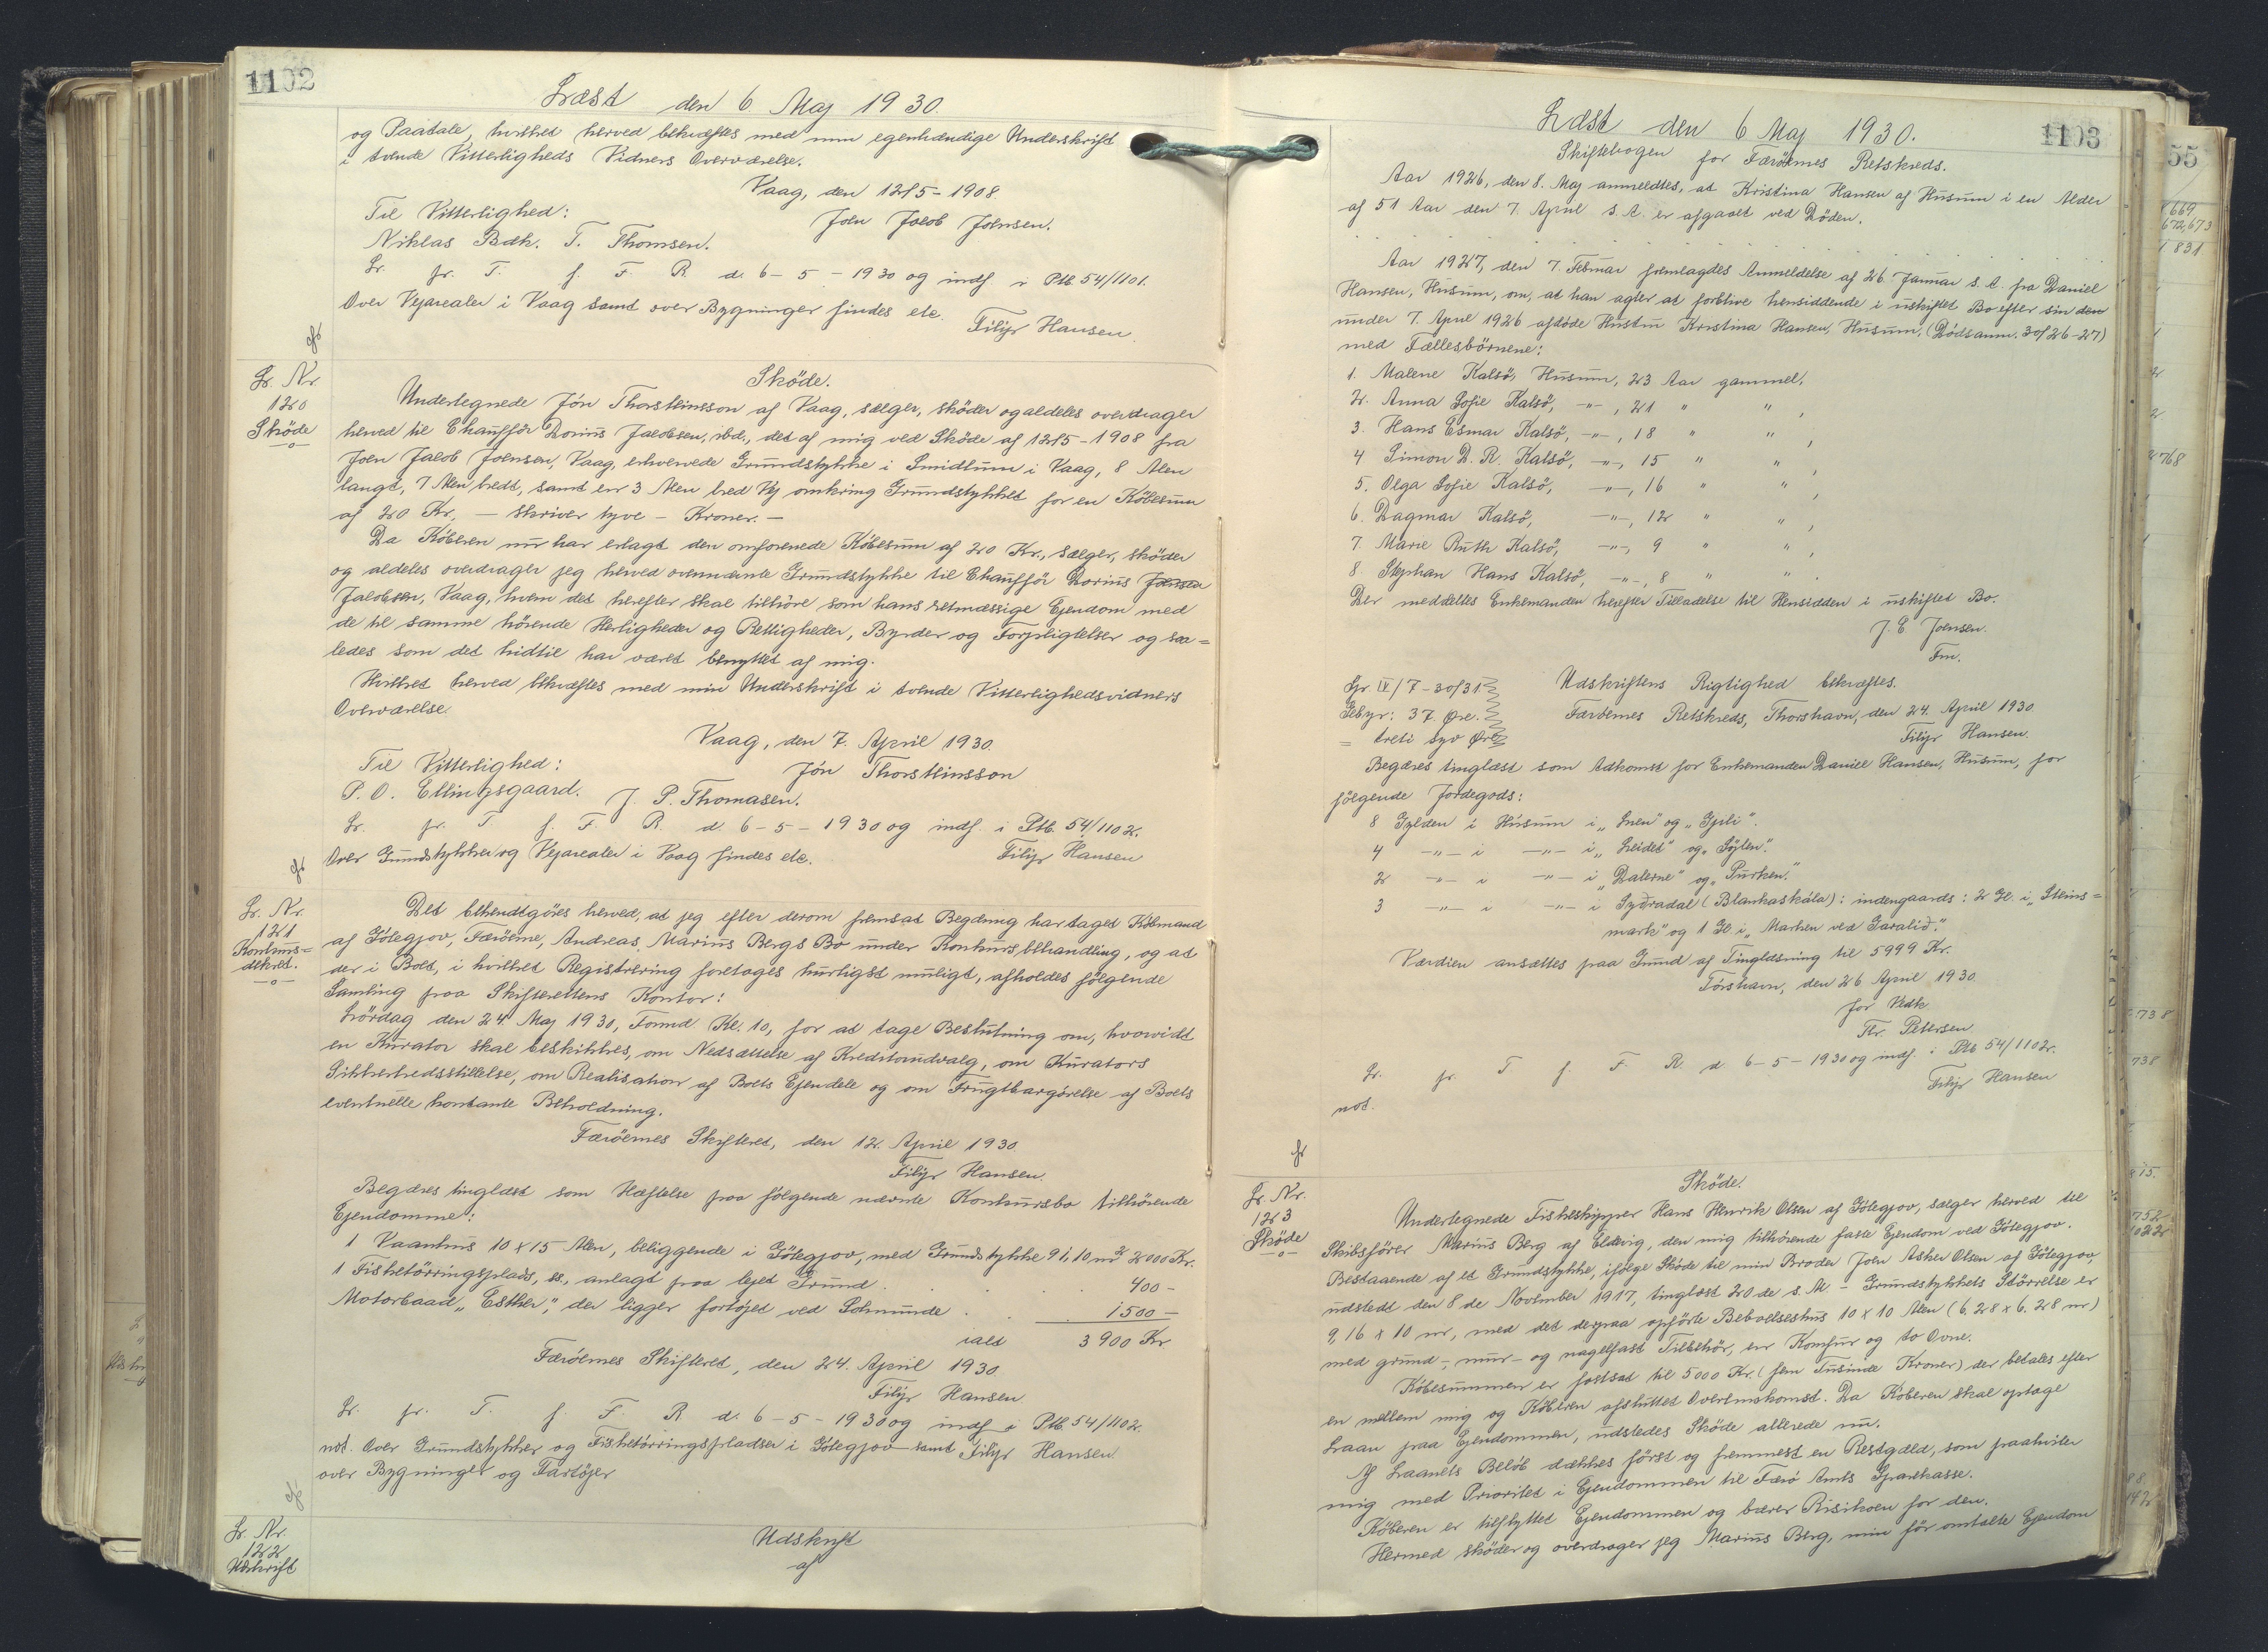 1102
Læst den 6 Maj 1930.
og Paatale, hvilket herved bekræftes med min egenhændige Underskrift
i tvende Vitterligheds Vidners Overværelse.
Vaag, den 12/5-1908.
Til Vitterlighed:
Joen Jacob Joensen.
Niklas Bæk. T. Thomsen.
Lr. fr. T. f. F. R. d. 6-5-1930 og indf i Ptb. 54/1101.
Over Vejarealer i Vaag samt over Bygninger findes etc.
Filip Hansen.
Lr. Nr.
120
Sköde
Sköde.
Undertegnede Jón Thorsteinsson af Vaag, sælger, sköder og aldeles overdrager
herved til Chauffør Dorius Jacobsen, ibd., det af mig ved Sköde af 12/5-1908 fra
Joen Jacob Joensen, Vaag, erhvervede Grundstykke i Smidtum i Vaag, 8 Alen
langt, 7 Alen bredt, samt en 3 Alen bred Vej omkring Grundstykket for en Købesum
af 20 Kr. – skriver tyve – Kroner. –
Da Köberen nu har erlagt den omforenede Köbesum af 20 Kr., sælger, sköder
og aldeles overdrager jeg herved ovennævnte Grundstykke til Chauffør Dorius Joensen
Jacobsen, Vaag, hvem det herefter skal tilhöre som hans retmæssige Ejendom med
de til samme hörende Herligheder og Rettigheder, Byrder og Forpligtelser og saa=
ledes som det hidtil har været benyttet af mig.
Hvilket herved bekræftes med min Underskrift i tvende Vitterlighedsvidners
Overværelse.
Vaag, den 7. April 1930.
Til Vitterlighed:
Jón Thorsteinsson
P. O. Ellingsgaard. J. P. Thomasen.
Lr. fr. T. f. F. R. d. 6-5-1930 og indf. i Ptb. 54/1102.
Over Grundstykker og Vejarealer i Vaag findes etc.
Filip Hansen
Lr. Nr.
121
Konkurs=
dekret.
Det bekendtgöres herved, at jeg efter derom fremsat Begæring har taget Købmand
af Götegjov, Færöerne, Andreas Marius Bergs Bo under Konkursbehandling, og at
der i Boet, i hvilket Registrering foretages hurtigst muligt, afholdes følgende
Samling paa Skifterettens Kontor:
Lördag den 24. Maj 1930, Formd. Kl. 10, for at tage Beslutning om, hvorvidt
en Kurator skal beskikkes, om Nedsættelse af Kreditorudvalg, om Kurators
Sikkerhedsstillelse, om Realisation af Boets Ejendele og om Frugtbargörelse af Boets
eventuelle kontante Beholdning.
Færöernes Skifteret, den 12. April 1930
Filip Hansen.
Begæres tinglæst som Hæftelse paa følgende nævnte Konkursbo tilhörende
Ejendomme:
1 Vaanhus 10 x 15 Alen, beliggende i Götegjov, med Grundstykke 91,10 m² 2000 Kr.
1 Fisketörringsplads, anlagt paa lejet Grund. 400 –
Motorbaad „Esther", der ligger fortöjet ved Solmunde. 1500 –
ialt 3900 Kr
Færöernes Skifteret, den 24. April 1930
Filip Hansen
Lr. fr. T. f. F. R. d. 6-5-1930 og indf i Ptb. 54/1102.
not. Over Grundstykker og Fisketörringspladser i Götegjov samt Filip Hansen.
over Bygninger og Fartöjer
Lr. Nr.
122
Udskrift
Udskrift
af
1103
Læst den 6 Maj 1930.
Skiftebogen for Færöernes Retskreds.
Aar 1926, den 8. Maj anmeldtes, at Kristina Hansen af Husum i en Alder
af 51 Aar den 7. April s. A. er afgaaet ved Döden.
Aar 1927, den 7. Februar fremlagdes Anmeldelse af 26 Januar s. A. fra Daniel
Hansen, Husum, om, at han agter at forblive hensiddende i uskiftet Bo efter sin den
under 7. April 1926 afdöde Hustru Kristina Hansen, Husum, (Dödsanm. 30/26-27)
med Fællesbörnene:
1. Malene Kalsö, Husum, 23 Aar gammel,
2. Anna Sofie Kalsö, -"-, 21 " ",
3. Hans Esmar Kalsö, -"-, 18 " ",
4 Simon D. R. Kalsö, -"-, 15 " ",
5. Olga Sofie Kalsö, -"-, 16 " ",
6. Dagmar Kalsö, -"-, 12 " ",
7. Marie Ruth Kalsö, -"-, 9 " ",
8. Stephan Hans Kalsö, -"-, 8 " ".
Der meddeltes Enkemanden herefter Tilladelse til Hensidden i uskiftet Bo.
J. E Joensen.
Fm.
Gr. IV/7-30/31
Gebyr: 37. Øre.
= treti syv Øre
Udskriftens Rigtighed bekræftes.
Færöernes Retskreds, Thorshavn, den 24. April 1930
Filip Hansen.
Begæres tinglæst som Adkomst for Enkemanden Daniel Hansen, Husum, for
følgende Jordegods:
8 Gylden i Husum i „Inen" og „Gjili".
4 -"- i -"- i „Leidet" og „Sÿlen".
2 -"- i -"- i „Dalerne" og „Purken."
3 -"- i -"- i Sydradal (Blankaskála): indengaards: 2 Gl. i „Steins=
mark" og 1 Gl i „Marken ved Garalid".
Værdien ansættes paa Grund af Tinglæsning til 5999 Kr.
Tórshavn, den 26 April 1930.
for Vedk
Thr. Petersen.
Lr. fr. T f. F. R. d 6-5-1930 og indf. i Ptb 54/1102.
not.
Filip Hansen
Lr. Nr.
123
Sköde
Sköde.
Undertegnede Fiskeskipper Hans Henrik Olsen af Götegjov, sælger herved til
Skibsförer Marius Berg af Eldevig, den mig tilhörende faste Ejendom ved Götegjov.
Bestaaende af et Grundstykke, ifölge Sköde til min Broder Joen Asker Olsen af Götegjov,
udstedt den 8de November 1917, tinglæst 20de s. M. – Grundstykkets Störrelse er
9,16 x 10 m, med det derpaa opförte Beboelseshus 10 x 10 Alen (6,28 x 6,28 m)
med grund-, mur- og nagelfast Tilbehör, en Komfur og to Ovne.
Köbesummen er fastsat til 5000 Kr. (fem Tusinde Kroner) der betales efter
en mellem mig og Köberen afsluttet Overenskomst. Da Köberen skal optage
Laan paa Ejendommen, udstedes Sköde allerede nu.
Af Laanets Beløb dækkes först og fremmest en Restgæld, som paahviler
mig med Prioritet i Ejendommen til Færö Amts Sparekasse.
Köberen er tilflyttet Ejendommen og bærer Risikoen for den.
Hermed sköder og overdrager jeg Marius Berg, min för omtalte Ejendom
55
669
672,673
831
768
738
738
875.
752
1022
142